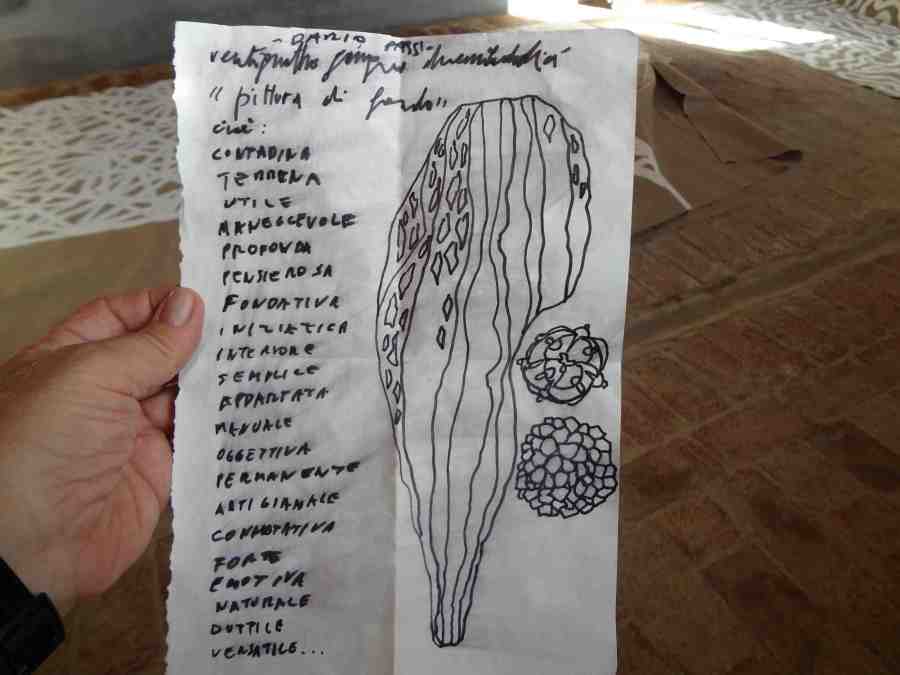 DARIO PASSI
ventiquattro giugno
" pittura di fondo "
cioè:
CONTADINA
TERRENA
UTILE
MANEGGEVOLE
PROFONDA
PENSIEROSA
FONDATIVA
INIZIATICA
INTERIORE
SEMPLICE
APPARTATA
MANUALE
OGGETTIVA
PERMANENTE
ARTIGIANALE
CONNOTATIVA
FORTE
EMOTIVA
NATURALE
DUTTILE
VERSATILE...